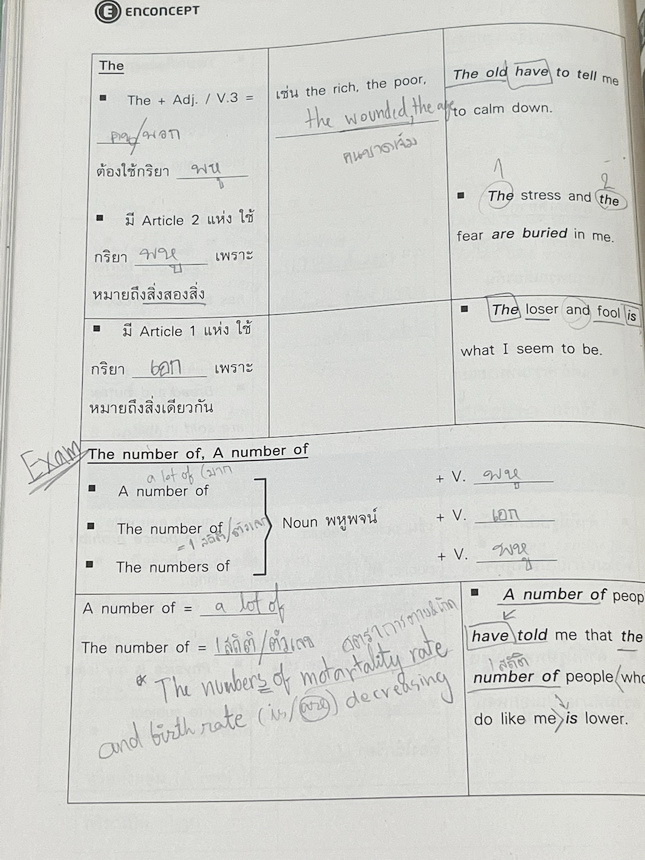 E ENCONCEPT
The
▪ The + Adj. / V.3 =
คน/พวก
ต้องใช้กริยา พหู
▪ มี Article 2 แห่ง ใช้
กริยา พหู เพราะ
หมายถึงสิ่งสองสิ่ง
เช่น the rich, the poor,
the wounded, the
คนบาดเจ็บ
The old have to tell me
to calm down.
1 2
▪ The stress and the
fear are buried in me.
▪ มี Article 1 แห่ง ใช้
กริยา เอก เพราะ
หมายถึงสิ่งเดียวกัน
▪ The loser and fool is
what I seem to be.
Exam
The number of, A number of
a lot of (มาก
▪ A number of
▪ The number of
= 1 สถิติ/ตัวเลข
▪ The numbers of
Noun พหูพจน์
+ V. พหู
+ V. เอก
+ V. พหู
A number of = a lot of
The number of = 1 สถิติ/ตัวเลข
* The numbers of motartality rate
and birth rate (is/are) decreasing
▪ A number of peop
have told me that the
1 สถิติ
number of people who
do like me is lower.